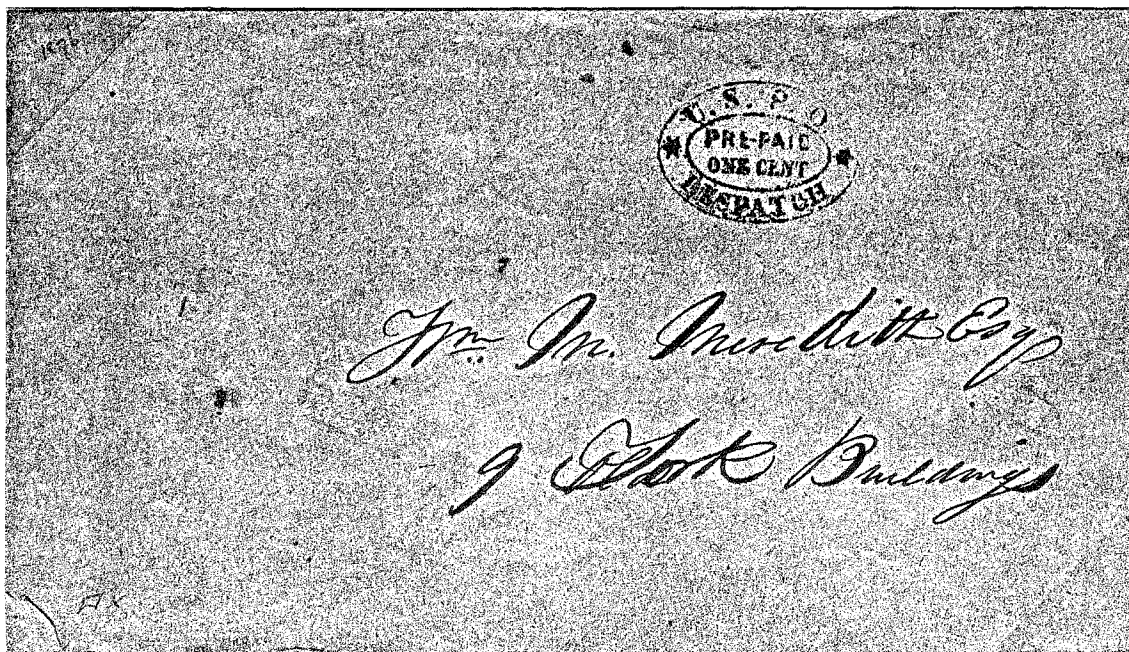 U.S. P O
PRE-PAID
ONE CENT
DESPATCH
Wm M. Meredith Esq
9 Buildings